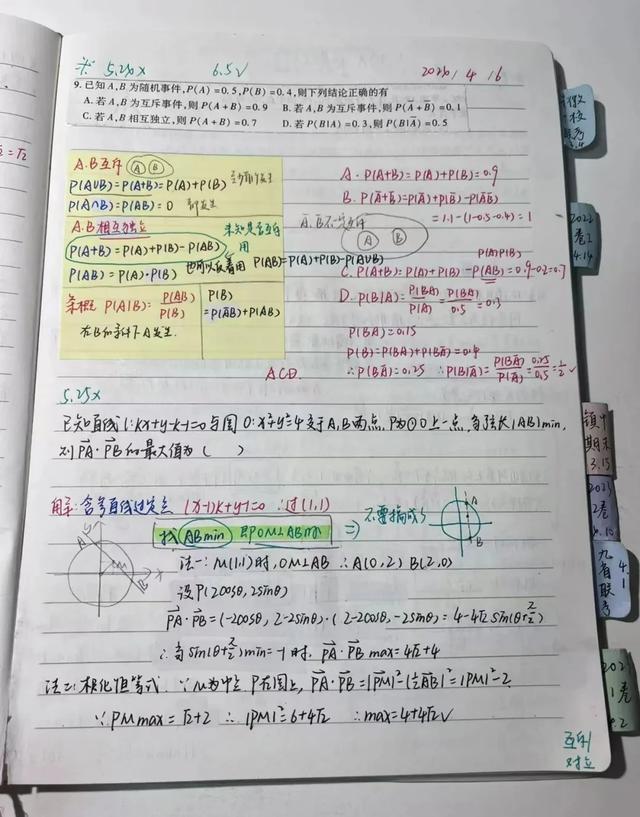 5.23x 6.5√
9.已知A,B为随机事件,P(A)=0.5,P(B)=0.4,则下列结论正确的有
A.若A,B为互斥事件,则P(A+B)=0.9 B.若A,B为互斥事件,则P(A̅+B̅)=0.1
C.若A,B相互独立,则P(A+B)=0.7 D.若P(B|A)=0.3,则P(B|A̅)=0.5
A.B互斥 A B
P(A∪B)=P(A+B)=P(A)+P(B)
P(A∩B)=P(AB)=0
A.B相互独立
未知是否互斥用
P(A+B)=P(A)+P(B)-P(AB)
P(AB)=P(A)·P(B) 也可以反着用 P(AB)=P(A)+P(B)-P(A∪B)
条概 P(A|B)=P(AB)/P(B)
在B的条件下A发生.
P(B)
=P(A̅B)+P(AB)
A. P(A+B)=P(A)+P(B)=0.9
B. P(A̅+B̅)=P(A̅)+P(B̅)-P(A̅B̅)
=1.1-(1-0.5-0.4)=1
A̅.B̅不一定互斥
A B
P(A)P(B)
C. P(A+B)=P(A)+P(B)-P(AB)=0.9-0.2=0.7
D. P(B|A)=P(BA)/P(A)=P(BA)/0.5=0.3
P(BA)=0.15
P(B)=P(BA)+P(BA̅)=0.4
∴P(BA̅)=0.25 ∴P(B|A̅)=P(BA̅)/P(A̅)=0.25/0.5=1/2√
ACD.
5.25x
已知直线l:kx+y-k-1=0与圆O:x²+y²=4交于A,B两点,P为⊙O上一点,当弦长|AB|min,
则PA·PB的最大值为( )
解:含参直线过定点 (x-1)k+y-1=0 ∴过(1,1)
找ABmin 即OM⊥AB时 ⇒ 不要搞成了
A
B
A
M
B
y
x
法一:M(1,1)时,OM⊥AB ∴A(0,2) B(2,0)
设P(2cosθ,2sinθ)
PA·PB=(-2cosθ,2-2sinθ)·(2-2cosθ,-2sinθ)=4-4√2sin(θ+π/2)
∴当sin(θ+π/2)min=-1时, PA·PB max=4√2+4
法二:极化恒等式 ∵M为中点 P在圆上, PA·PB=|PM|²-|½AB|²=|PM|²-2
∵PMmax=√2+2 ∴|PM|²=6+4√2 ∴max=4+4√2√
互斥
对立
2022
卷I
4.14
镇中
期末
3.15
2023
2卷
九
省
联
考
4.1
1卷